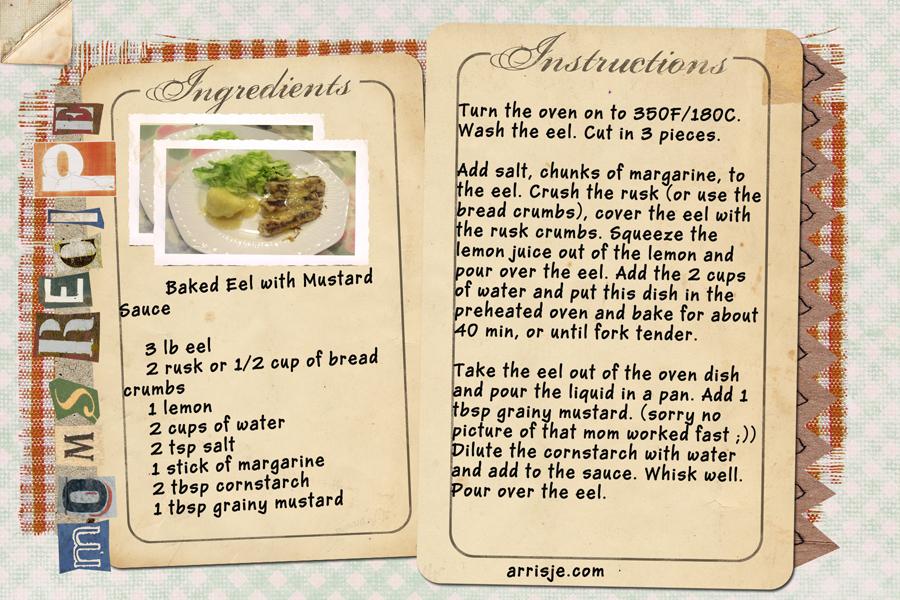 MOM'S RECIPE
Ingredients
Baked Eel with Mustard
Sauce
3 lb eel
2 rusk or 1/2 cup of bread
crumbs
1 lemon
2 cups of water
2 tsp salt
1 stick of margarine
2 tbsp cornstarch
1 tbsp grainy mustard
Instructions
Turn the oven on to 350F/180C.
Wash the eel. Cut in 3 pieces.
Add salt, chunks of margarine, to
the eel. Crush the rusk (or use the
bread crumbs), cover the eel with
the rusk crumbs. Squeeze the
lemon juice out of the lemon and
pour over the eel. Add the 2 cups
of water and put this dish in the
preheated oven and bake for about
40 min, or until fork tender.
Take the eel out of the oven dish
and pour the liquid in a pan. Add 1
tbsp grainy mustard. (sorry no
picture of that mom worked fast ;))
Dilute the cornstarch with water
and add to the sauce. Whisk well.
Pour over the eel.
arrisje.com